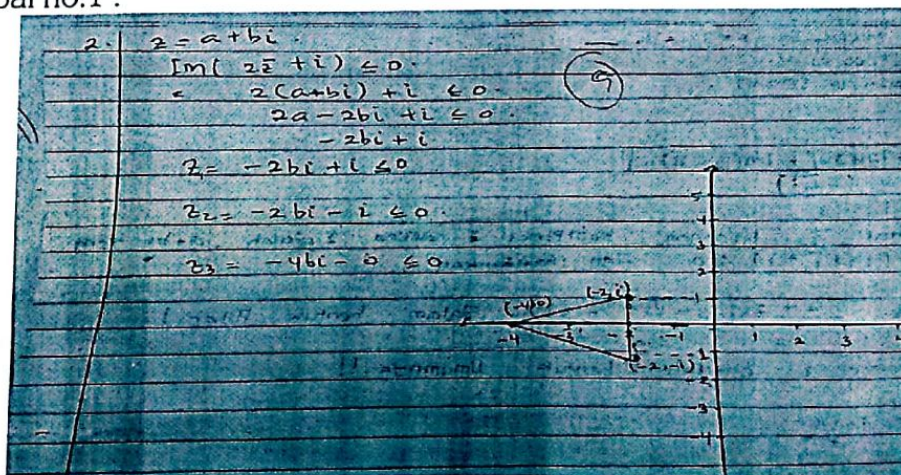 bar no.1 :
2. z = a + bi
Im( 2z̄ + i ) ≤ 0.
2(a+bi) + i ≤ 0.
2a - 2bi + i ≤ 0.
- 2bi + i
Z₁ = - 2bi + i ≤ 0
Z₂ = - 2bi - i ≤ 0.
Z₃ = - 4bi - 0 ≤ 0
5
4
3
2
1
(-4,0) (-2,i)
-4 -3 -1 1 2 3 4
-1
(-2,-1)
-2
-3
-4